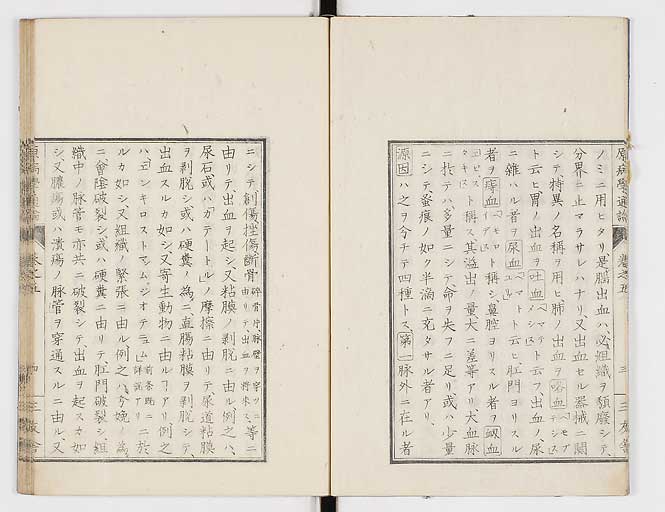 原病學通論 巻之五 三 三友舎
ノミニ用ヒタリ是腦出血ハ必組織ヲ頽廢シテ
分界ニ止マラサレハナリ又出血セル器械ニ關
シテ特異ノ名稱ヲ用ヒ肺ノ出血ヲ咯血「ヘモプ
ト云ヒ胃ノ出血ヲ吐血「ヘマテ ト云フ出血ノ尿
ニ雜ハル者ヲ尿血「ヘマト ト云ヒ肛門ヨリスル
者ヲ痔血「ヘモロ ト稱シ鼻腔ヨリスル者ヲ衂血
ト稱ス其溢出ノ量大ニ差等アリ大血脉
ニ於テハ多量ニシテ命ヲ失フニ足リ或ハ少量
ニシテ蚤痕ノ如ク半滴ニ充タサル者アリ
源因ハ之ヲ分チテ四種トス第一脉外ニ在ル者
ニシテ創傷挫傷斷骨 碎骨片脉壁ヲ穿ツニ由リテ出血ヲ將來ス 等ニ
由リテ出血ヲ起シ又粘膜ノ剥脱ニ由ル例之ハ
尿石或ハ「カテートル」ノ摩擦ニ由リテ尿道粘膜
ヲ剥脱シ或ハ硬糞ノ爲ニ直腸粘膜ヲ剥脱シテ
出血スルカ如シ又寄生動物ニ由ルアリ例之
ハ「エンキロストマムジオデニュム 前条既ニ詳説アリ ニ於
ルカ如シ又組織ノ緊張ニ由ル例之ハ分娩ノ爲
ニ會陰破裂シ或ハ硬糞ニ由リテ肛門破裂シ組
織中ノ脉管モ亦共ニ破裂シテ出血ヲ起スカ如
シ又膿瘍或ハ潰瘍ノ脉管ヲ穿通スルニ由ル又
原病學通論 巻之五 四 三友舎